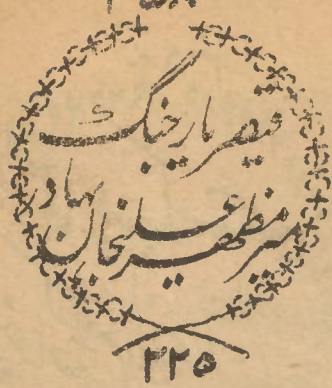 قیصر یار جنگ
میر مظهر علیخان بهادر
۲۲۵